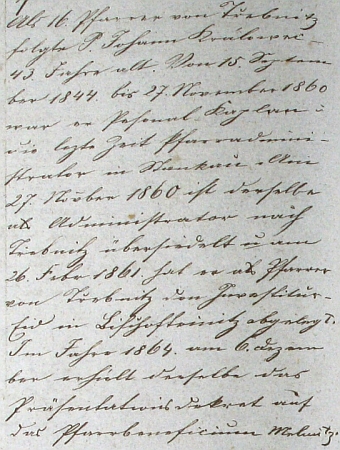 Als 16. Pfarrer von Trebnitz
folgte P. Johann Králowec
43 Jahre alt. Von 15. Septem
ber 1844. bis 27. November 1860
war er Personal Kaplan u
die lezte Zeit Pfarradmini-
strator in Stankau. Am
27. Novber 1860 ist derselbe
als Administrator nach
Trebnitz übersiedelt u am
26. Febr 1861. hat er als Pfarrer
von Trebnitz den Investitur-
Eid in Bischofteinitz abgelegt.
Im Jahre 1864. am 6. Dezem
ber erhielt derselbe das
Präsentationsdekret auf
das Pfarrbeneficium Melnitz.